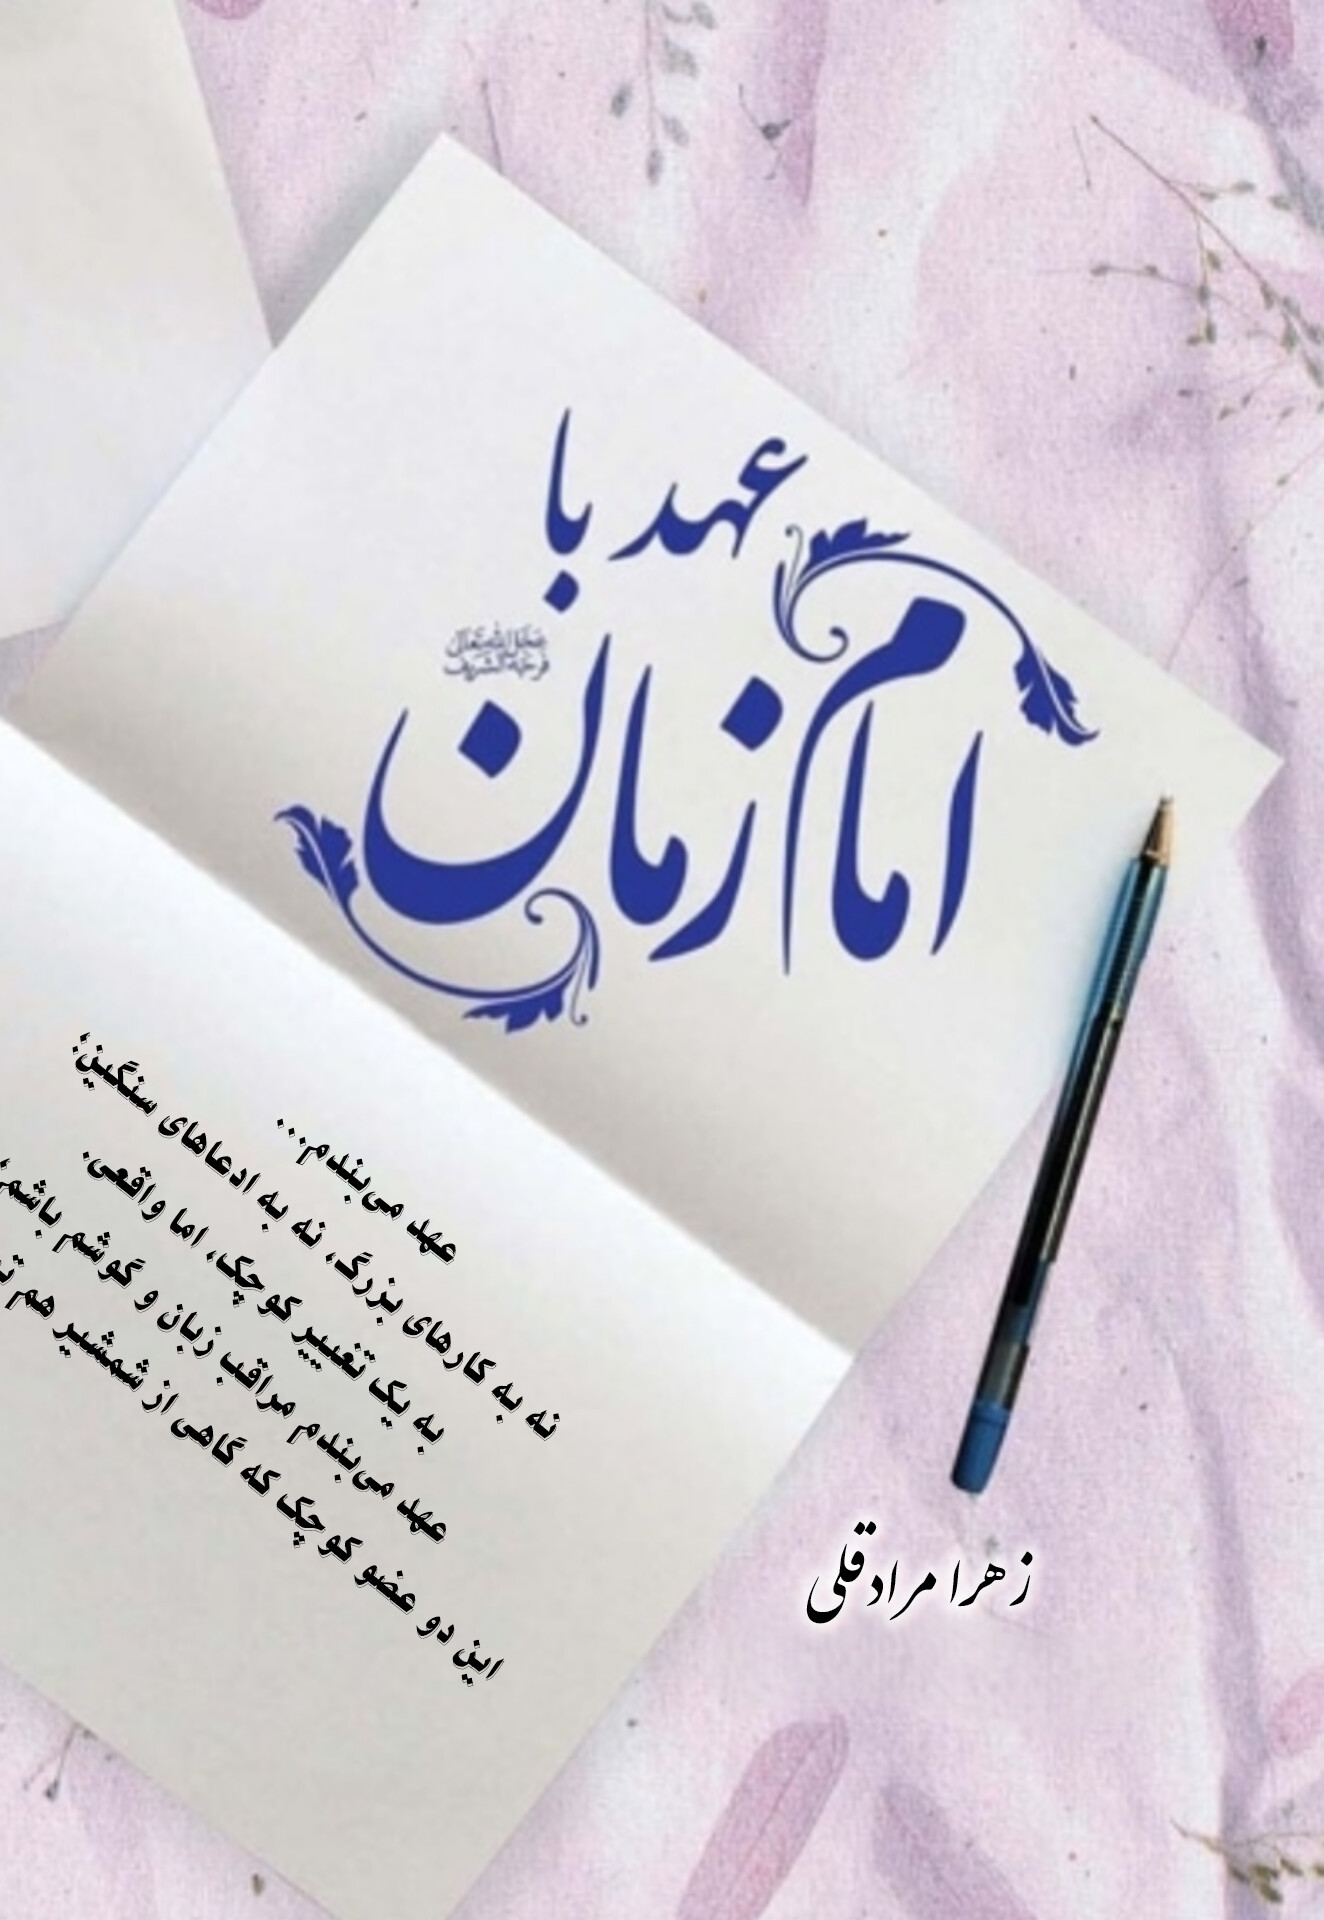 عهد با
امام زمان
عجل الله تعالی
فرجه الشریف
عهد می‌بندم...
نه به کارهای بزرگ، نه به ادعاهای سنگین؛
به یک تغییر کوچک، اما واقعی.
عهد می‌بندم مراقب زبان و گوشم باشم؛
این دو عضو کوچک که گاهی از شمشیر هم
زهرا مرادقلی